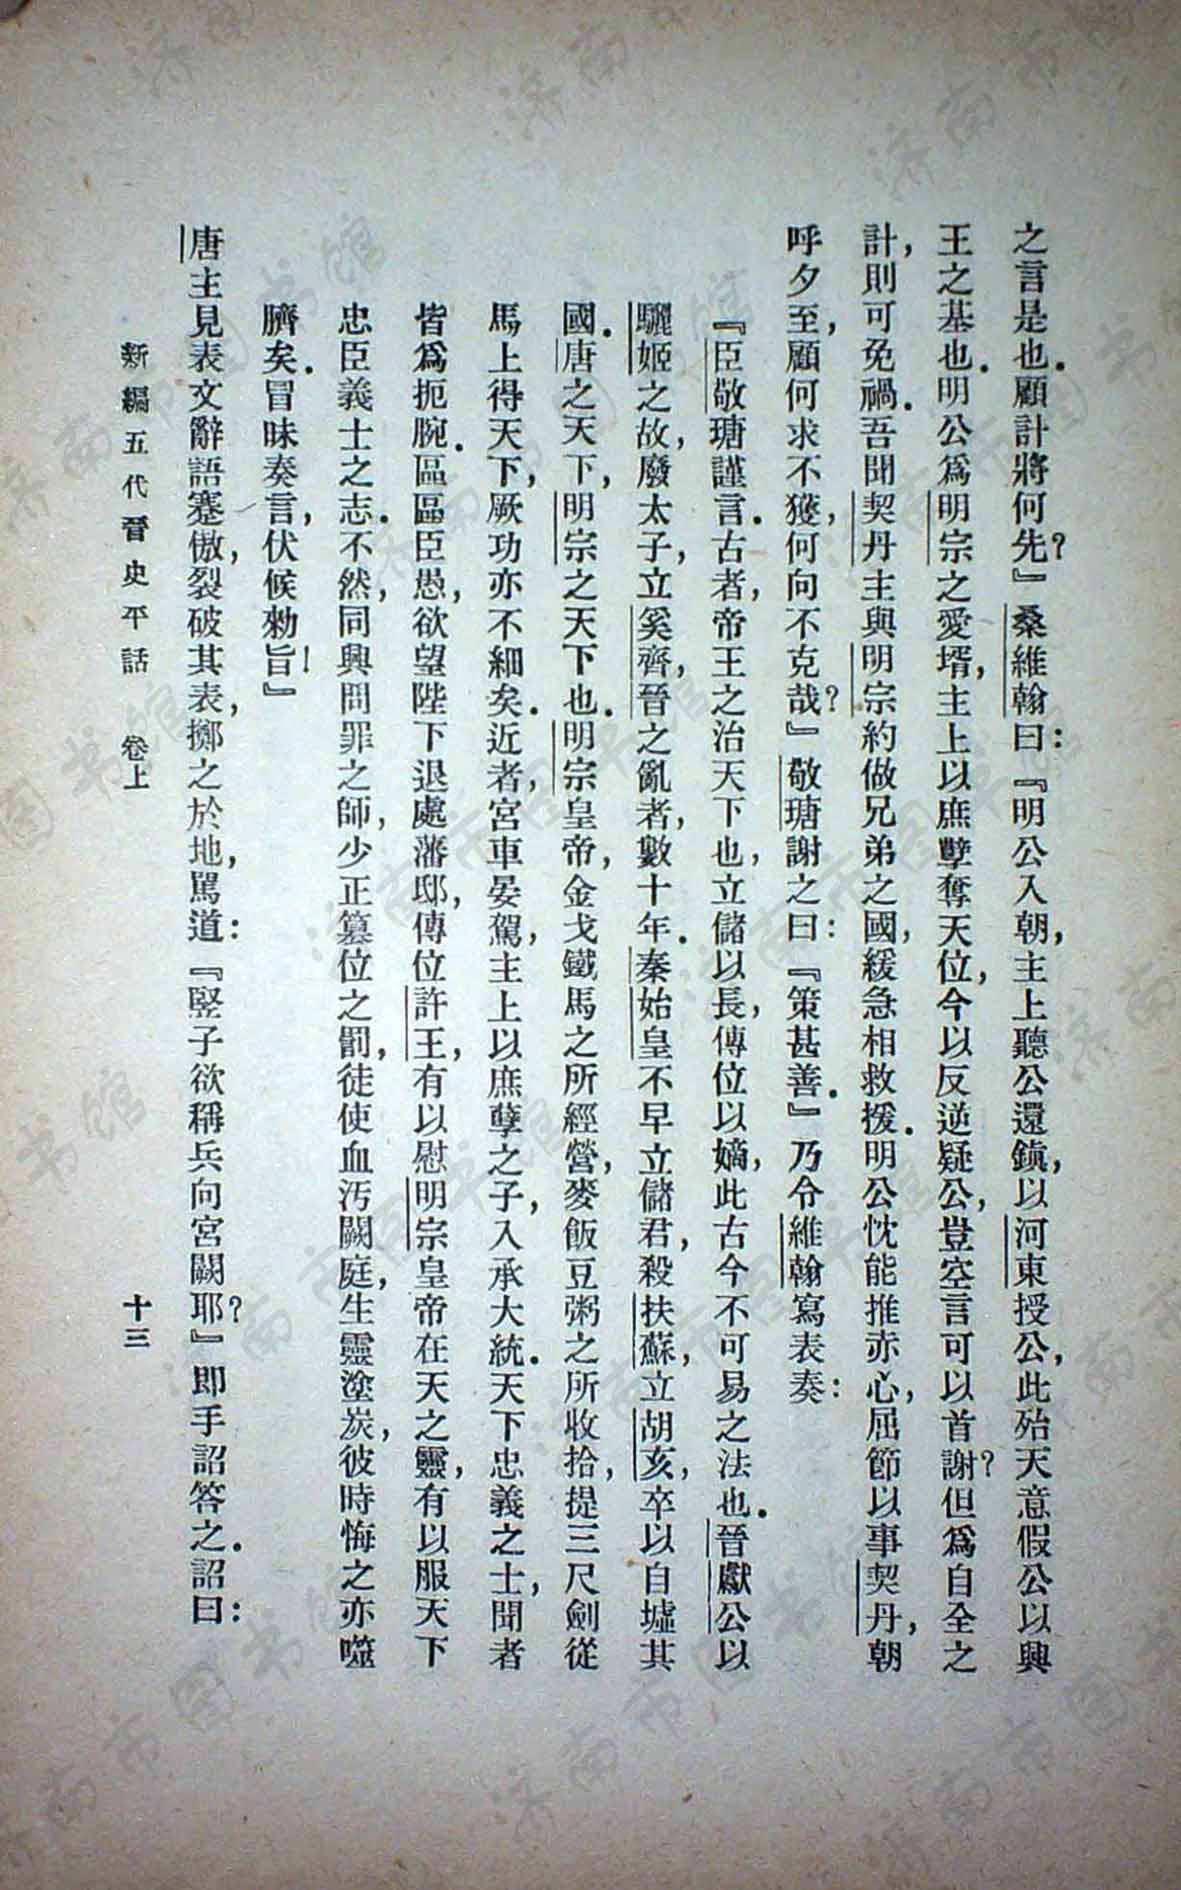 之言是也．顧計將何先？』桑維翰曰：『明公入朝，主上聽公還鎮，以河東授公，此殆天意假公以興
王之基也．明公爲明宗之愛壻，主上以庶孽奪天位，今以反逆疑公，豈空言可以首謝？但爲自全之
計，則可免禍．吾聞契丹主與明宗約做兄弟之國，緩急相救援．明公忱能推赤心，屈節以事契丹，朝
呼夕至，顧何求不獲，何向不克哉？』敬瑭謝之曰：『策甚善．』乃令維翰寫表奏：
『臣敬瑭謹言．古者，帝王之治天下也，立儲以長，傳位以嫡，此古今不可易之法也．晉獻公以
驪姬之故，廢太子，立奚齊，晉之亂者，數十年．秦始皇不早立儲君，殺扶蘇，立胡亥，卒以自墟其
國．唐之天下，明宗之天下也．明宗皇帝，金戈鐵馬之所經營，麥飯豆粥之所收拾，提三尺劍從
馬上得天下，厥功亦不細矣．近者，宮車晏駕，主上以庶孽之子，入承大統．天下忠義之士，聞者
皆爲扼腕．區區臣愚，欲望陛下退處藩邸，傳位許王，有以慰明宗皇帝在天之靈，有以服天下
忠臣義士之志．不然，同興問罪之師，少正篡位之罰，徒使血汚闕庭，生靈塗炭，彼時悔之亦噬
臍矣．冒昧奏言，伏候勑旨！』
唐主見表文辭語蹇傲，裂破其表，擲之於地，罵道：『竪子欲稱兵向宮闕耶？』即手詔答之．詔曰：
新編五代晉史平話　卷上　十三
济南市图书馆